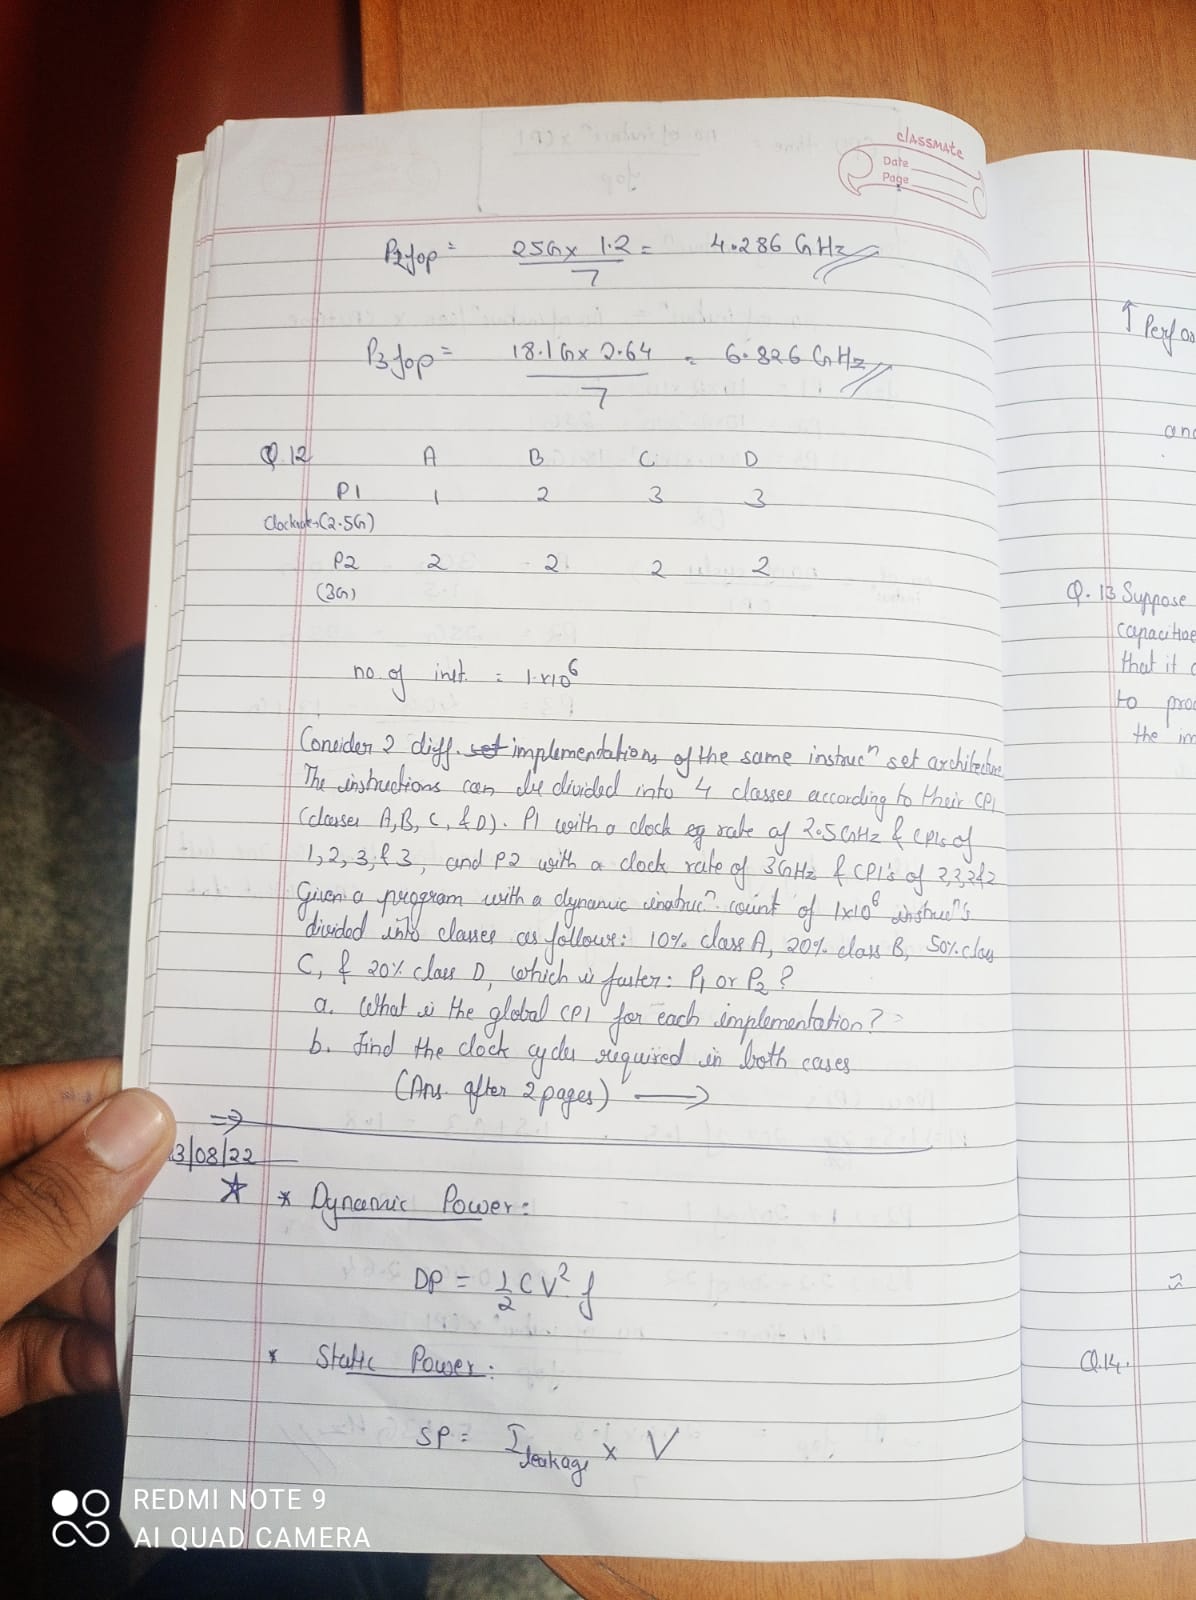 classmate
Date
Page
P2fop = 25G x 1.2 / 7 = 4.286 GHz
P3fop = 18.1G x 2.64 / 7 = 6.826 GHz
Q.12 A B C D
P1 1 2 3 3
Clockrate→(2.5G)
P2 2 2 2 2
(3G)
no. of inst. = 1x10⁶
Consider 2 diff. set implementations of the same instrucⁿ set architecture
The instructions can be divided into 4 classes according to their CPI
(classes A, B, C, & D). P1 with a clock eq rate of 2.5GHz & CPIs of
1, 2, 3, & 3, and P2 with a clock rate of 3GHz & CPI's of 2,2,2&2
Given a program with a dynamic instrucⁿ. count of 1x10⁶ instrucⁿs
divided into classes as follows: 10% class A, 20% class B, 50% class
C, & 20% class D, which is faster: P1 or P2?
a. What is the global CPI for each implementation?
b. Find the clock cycles required in both cases
(Ans. after 2 pages) ⟶
⇒
3/08/22
* Dynamic Power:
DP = 1/2 CV² f
* Static Power:
SP = I leakage x V
↑ Perfo
and
Q. 13 Suppose
capacitive
that it
to pro
the im
≈
Q.14.
REDMI NOTE 9
AI QUAD CAMERA